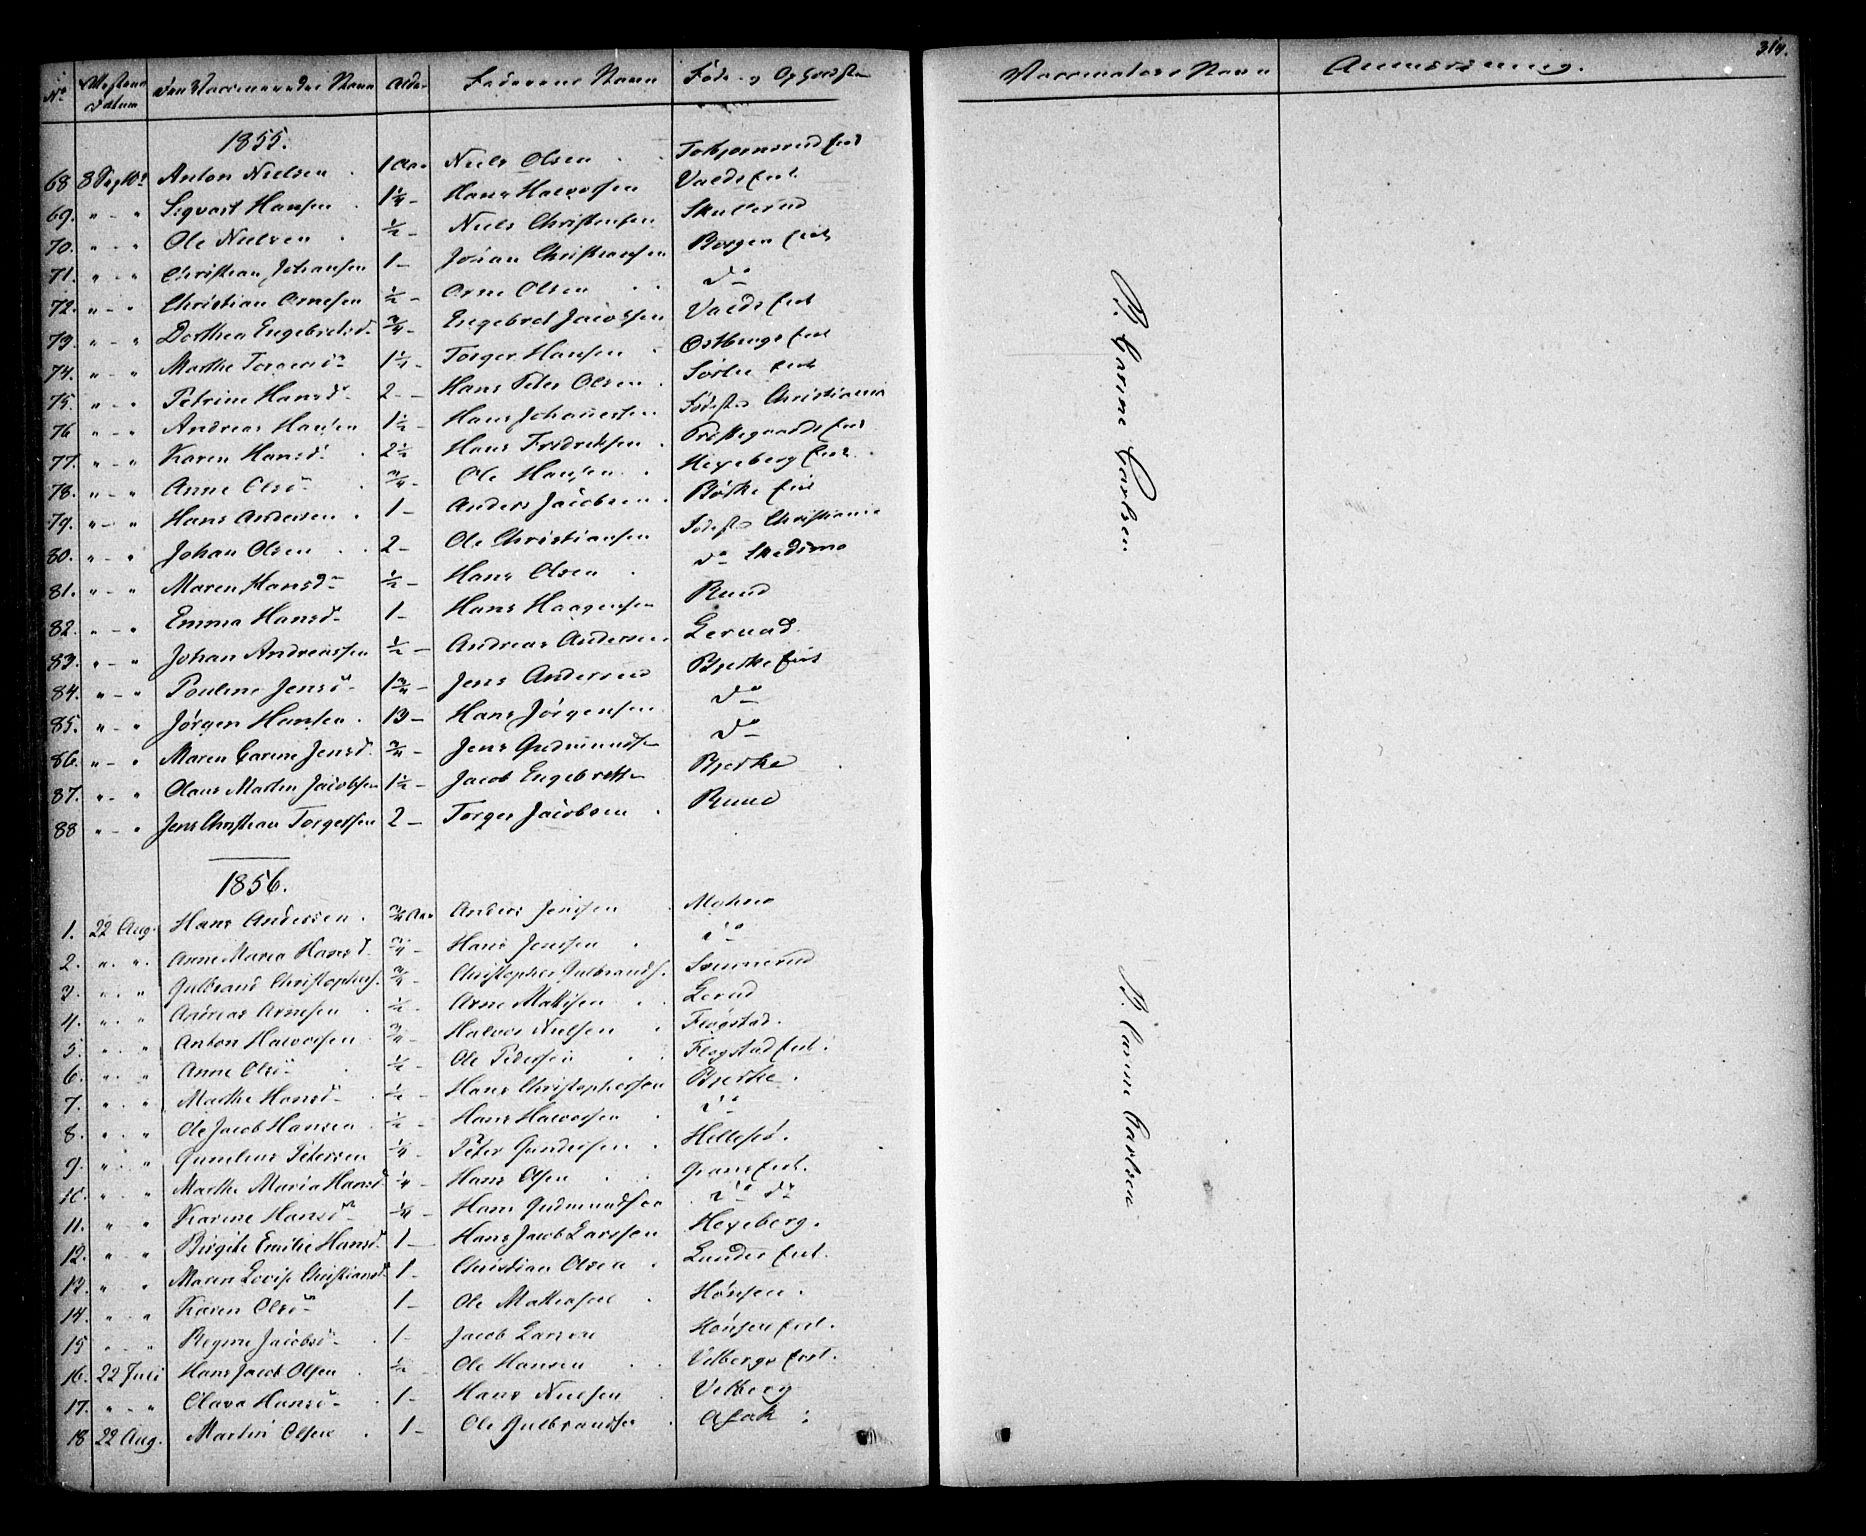 314.
No Attestens Datum Den Vaccineredes Navn Alder Faderens Navn Føde- og Opholdsste
Vaccinators Navn Anmærkning.
1855.
68 8 Septbr Anton Nielsen 1 Aar Niels Olsen
69. " - " Sigvart Hansen 1¼ - Hans Halvorsen Valdseiet
70. " - " Ole Nielsen ½ - Niels Christensen Skullerud
71. " - " Christian Johansen 1 - Johan Christiansen Borgen Eiet
72. " - " Christian Arnesen ½ - Arne Olsen do
73. " - " Dorthea Engebretsd. ¾ - Engebret Jacobsen Valdseiet
74. " - " Marthe Torgersdr 1¼ - Torger Hansen Østbyeiet
75. " - " Petrine Hansdr 2 - Hans Peter Olsen Sørlie Eiet
76 " - " Andreas Hansen 1½ - Hans Johannesen Fødest. Christiania
77. " - " Karen Hansd. 2½ Hans Fredriksen Præstegaardseiet
78. " - " Anne Olsdr ¾ - Ole Hansen Hexeberg Eiet
79. " - " Hans Andersen 1 - Anders Jacobsen Eiet
80. " - " Johan Olsen 2 - Ole Christiansen Fødest. Christiania
81. " - " Maren Hansdr ½ - Hans Olsen do Skedsmo
82. " - " Emma Hansd. 1 - Hans Haagensen Ruud
83. " - " Johan Andreassen ½ - Andreas Andersen Lerud
84. " - " Pouline Jensdr 1¾ - Jens Andersen Bjerke Eiet
85. " - " Jørgen Hansen 13 - Hans Jørgensen do
86. " - " Maren Carine Jensd. ¾ - Jens Gudmundsen do
87. " - " Olaus Martin Jacobsen 1½ - Jacob Engebretsen Bjerke
88 " - " Jens Christian Torgersen 2 - Torger Jacobsen Ruud
P. Carine Carlsen
1856.
1. 22 Aug. Hans Andersen ¾ Aar Anders Jensen Mohno
2. " . " . Anne Maria Hansd. ¾ - Hans Jenssen do
3 " . " Gulbrand Christophers. ¾ - Christopher Gulbrands.
4. " . " Andreas Arnesen ½ - Arne Mathisen Lerud
5. " . " Anton Halvorsen ¾ - Halvor Nielsen Flogstad.
6. " . " Anne Olsdr ½ - Ole Pedersen Flogstad Eiet.
7. " . " Marthe Hansd. ½ - Hans Christophersen Bjerke.
8. " . " Ole Jacob Hansen ½ - Hans Halvorsen do
9. " . " Gunelius Petersen ¼ - Peter Gundersen
10. " . " Marthe Maria Hansd. ¼ - Hans Olsen Eiet.
11. " . " Karine Hansdr ¼ - Hans Gudmundsen do do
12. " . " Birgithe Emilie Hansd. 1 - Hans Jacob Larssen Hexeberg.
13 " . " Maren Lovise Christiansd. 1 - Christian Olsen Lunder Eiet.
14. " . " Karen Olsdr 1 - Ole Mathiesen Hønsen.
15 " . " Regine Jacobsdr 1 - Jacob Larsen Hønsen Eiet.
16. 22 Juli Hans Jacob Olsen ½ - Ole Hansen Vilbergs Eiet.
17. " - " Clara Hansdr 1 - Hans Nielsen Vilberg
18 22 Aug. Martin Olsen 1 - Ole Gulbrandsen Asak
P. Carine Carlsen